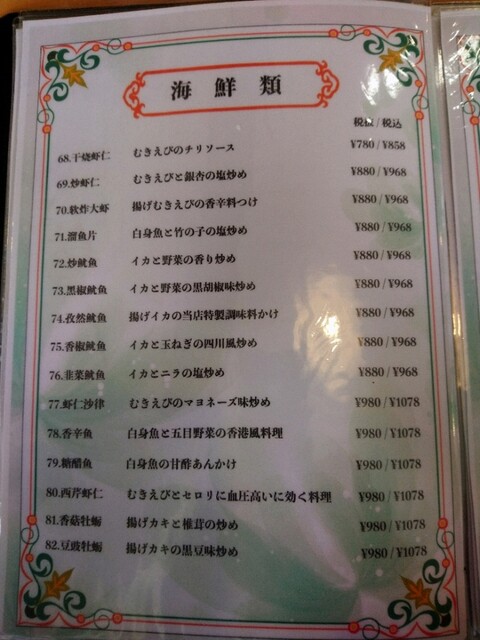 海鮮類
税抜 / 税込
68.干烧虾仁 むきえびのチリソース ¥780 / ¥858
69.炒虾仁 むきえびと銀杏の塩炒め ¥880 / ¥968
70.软炸大虾 揚げむきえびの香辛料つけ ¥880 / ¥968
71.溜鱼片 白身魚と竹の子の塩炒め ¥880 / ¥968
72.炒鱿鱼 イカと野菜の香り炒め ¥880 / ¥968
73.黑椒鱿鱼 イカと野菜の黒胡椒味炒め ¥880 / ¥968
74.孜然鱿鱼 揚げイカの当店特製調味料かけ ¥880 / ¥968
75.香椒鱿鱼 イカと玉ねぎの四川風炒め ¥880 / ¥968
76.韭菜鱿鱼 イカとニラの塩炒め ¥880 / ¥968
77.虾仁沙律 むきえびのマヨネーズ味炒め ¥980 / ¥1078
78.香辛鱼 白身魚と五目野菜の香港風料理 ¥980 / ¥1078
79.糖醋鱼 白身魚の甘酢あんかけ ¥980 / ¥1078
80.西芹虾仁 むきえびとセロリに血圧高いに効く料理 ¥980 / ¥1078
81.香菇牡蛎 揚げカキと椎茸の炒め ¥980 / ¥1078
82.豆豉牡蛎 揚げカキの黒豆味炒め ¥980 / ¥1078